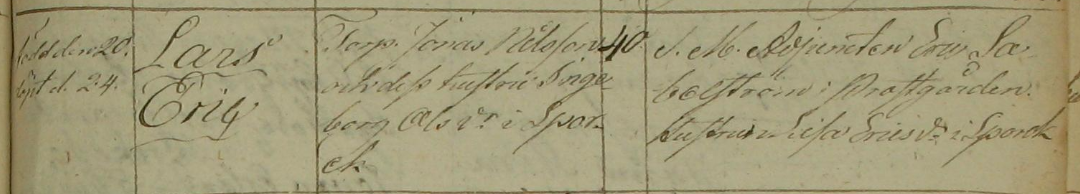 född den 20.
döpt d. 24.
Lars
Eric
Torp. Jonas Nilsson
och dess hustru Inge-
borg Ols dr i Spar-
ek
40
S. M. Adjuncten Eric Sa-
belström i Prostgården.
hustrun Lisa Erics dr i Sparek